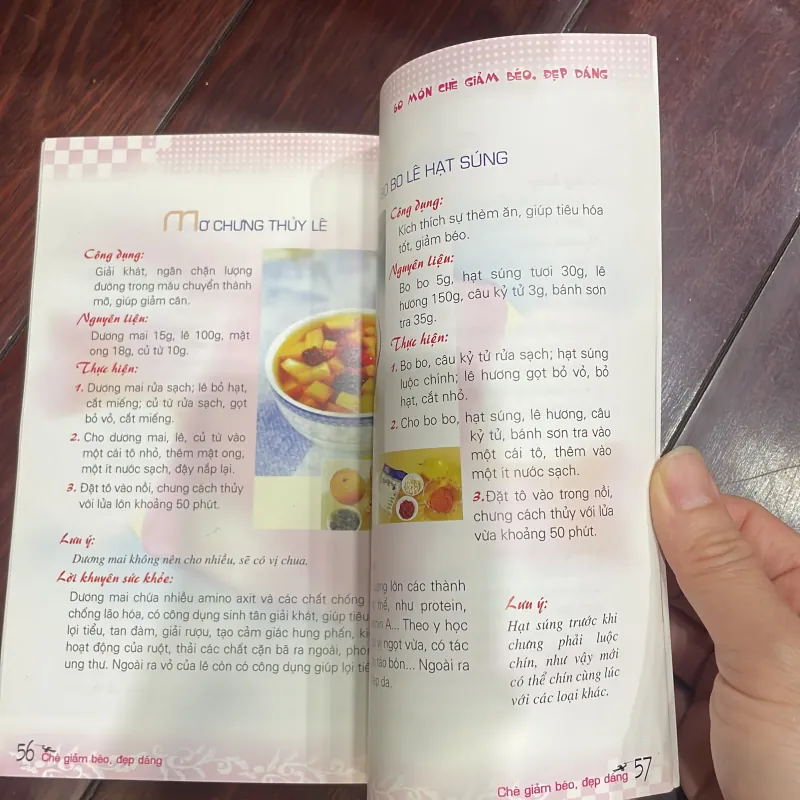 MƠ CHƯNG THỦY LÊ
Công dụng:
Giải khát, ngăn chặn lượng
đường trong máu chuyển thành
mỡ, giúp giảm cân.
Nguyên liệu:
Dương mai 15g, lê 100g, mật
ong 18g, củ từ 10g.
Thực hiện:
1. Dương mai rửa sạch; lê bỏ hạt,
cắt miếng; củ từ rửa sạch, gọt
bỏ vỏ, cắt miếng.
2. Cho dương mai, lê, củ từ vào
một cái tô nhỏ, thêm mật ong,
một ít nước sạch, đậy nắp lại.
3. Đặt tô vào nồi, chưng cách thủy
với lửa lớn khoảng 50 phút.
Lưu ý:
Dương mai không nên cho nhiều, sẽ có vị chua.
Lời khuyên sức khỏe:
Dương mai chứa nhiều amino axit và các chất chống
chống lão hóa, có công dụng sinh tân giải khát, giúp tiêu
lợi tiểu, tan đàm, giải rượu, tạo cảm giác hưng phấn,
hoạt động của ruột, thải các chất cặn bã ra ngoài,
ung thư. Ngoài ra vỏ của lê còn có công dụng giúp lợi
56 Chè giảm béo, đẹp dáng
60 MÓN CHÈ GIẢM BÉO, ĐẸP DÁNG
BO LÊ HẠT SÚNG
Công dụng:
Kích thích sự thèm ăn, giúp tiêu hóa
tốt, giảm béo.
Nguyên liệu:
Bo bo 5g, hạt súng tươi 30g, lê
hương 150g, câu kỷ tử 3g, bánh sơn
tra 35g.
Thực hiện:
1. Bo bo, câu kỷ tử rửa sạch; hạt súng
luộc chính; lê hương gọt bỏ vỏ, bỏ
hạt, cắt nhỏ.
2. Cho bo bo, hạt súng, lê hương, câu
kỷ tử, bánh sơn tra vào
một cái tô, thêm vào
một ít nước sạch.
3. Đặt tô vào trong nồi,
chưng cách thủy với lửa
vừa khoảng 50 phút.
lớn các thành
thể, như protein,
A... Theo y học
vị ngọt vừa, có tác
táo bón... Ngoài ra
da.
Lưu ý:
Hạt súng trước khi
chưng phải luộc
chín, như vậy mới
có thể chín cùng lúc
với các loại khác.
Chè giảm béo, đẹp dáng 57